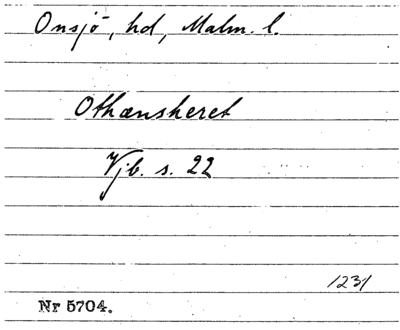 Onsjö, hd, Malm. l.
Othænsheret
Vjb. s. 22
1231
Nr 5704.